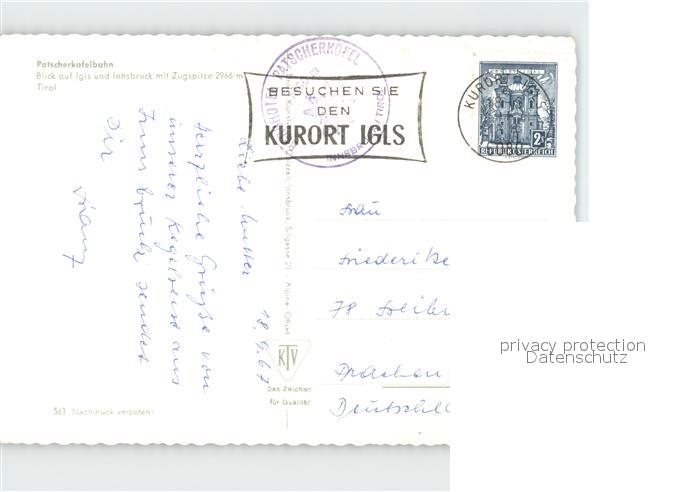 Patscherkofelbahn
Blick auf Igls und Innsbruck mit Zugspitze 2966 m
Tirol
HOTEL PATSCHERKOFEL
INNSBRUCK / TIROL
BESUCHEN SIE
DEN
KURORT IGLS
KURORT IGLS
REPUBLIK ÖSTERREICH
Liebe Mutter
18.9.67
Herzliche Grüße von
unserer Kegelreise aus
Innsbruck sendet
Dir
Franz
Innsbruck, Sillgasse 21 - Alpine Offset
Frau
Friederike
78 Freibu
Deutschl
KTV
Das Zeichen
für Qualität
561 Nachdruck verboten!
privacy protection
Datenschutz